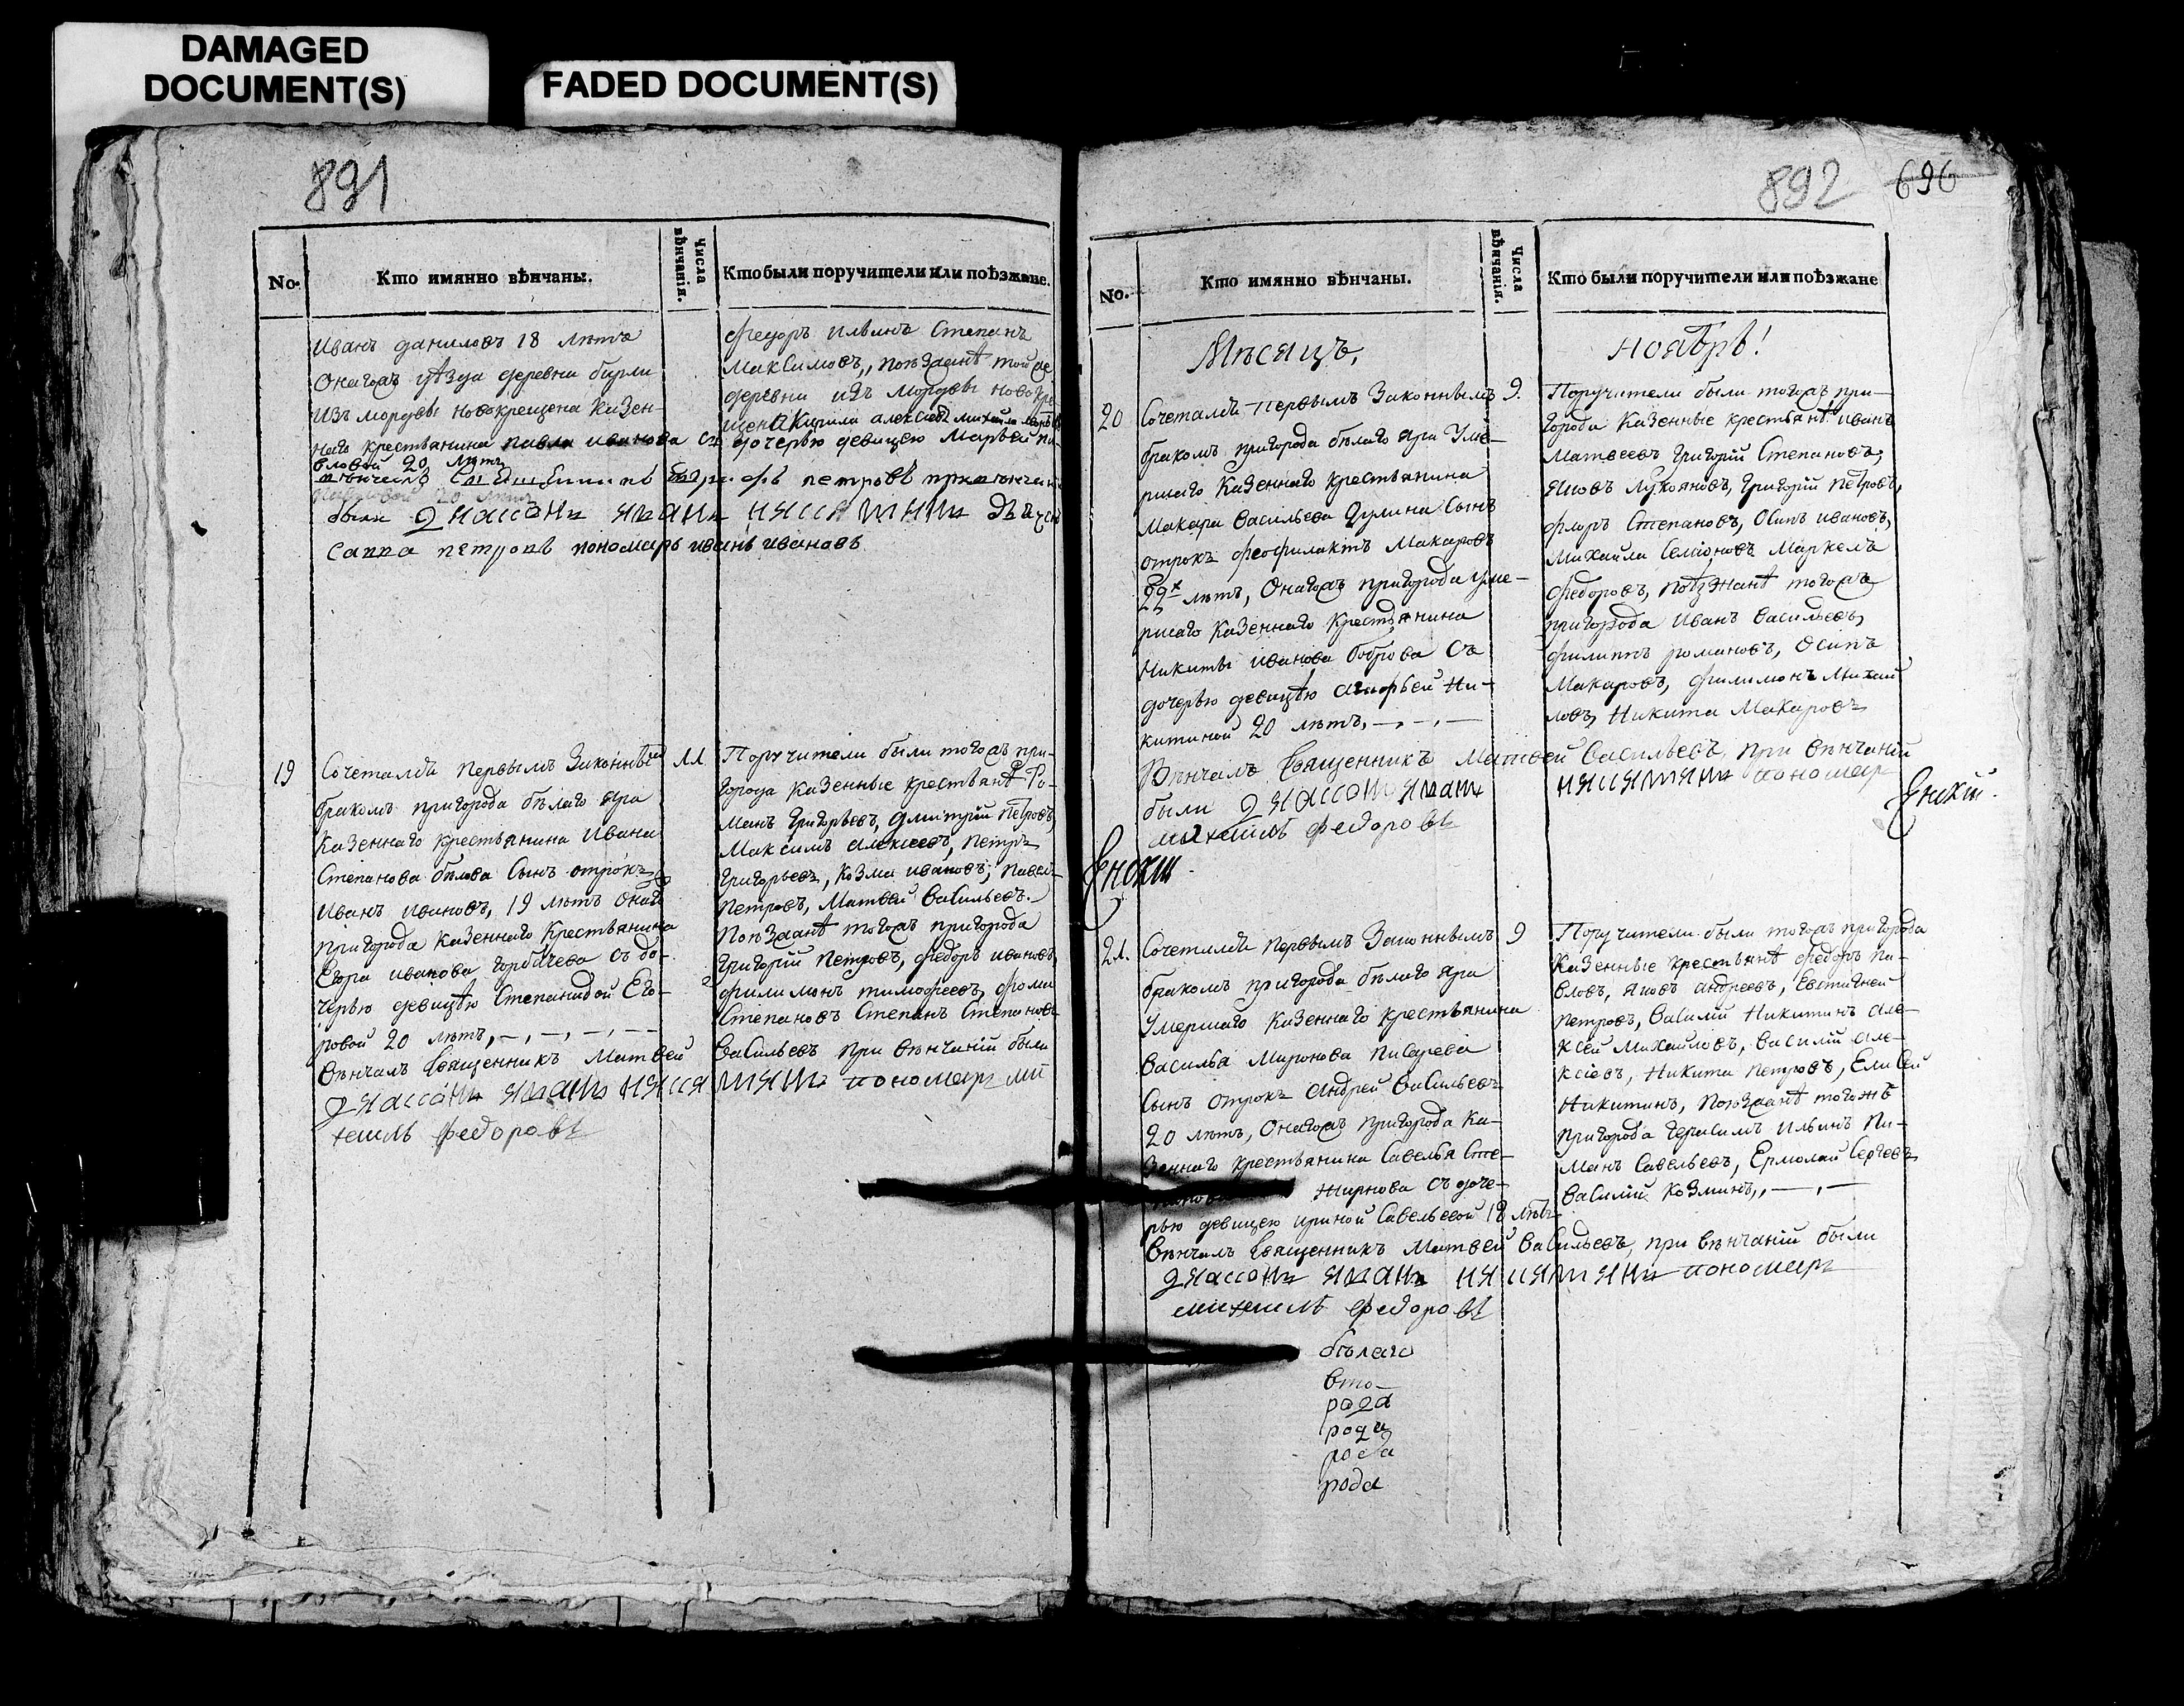 DAMAGED
DOCUMENT(S)
FADED DOCUMENT(S)
891
No. Кто имянно вѣнчаны. Числа вѣнчанія. Кто были поручители или поѣзжане.
Иванъ даниловъ 18 лѣтъ
Онагожъ уѣзда деревни
изъ мордвы новокрещена Казен-
наго крестьянина павла иванова съ дочерью девицею Марьей па-
вловой 20 лѣтъ
были
савва петровъ пономарь иванъ ивановъ
Федоръ ильинъ Степанъ
Максимовъ, поѣзжанѣ тойже
деревни изъ мордвы новокре
щены Кирила алексѣевъ михайла
19
Сочетался первымъ Законнымъ
бракомъ пригорода бѣлаго яра
Казеннаго крестьянина Ивана
Степанова бѣлова Сынъ отрокъ
Иванъ ивановъ, 19 лѣтъ онаго
пригорода казеннаго Крестьянина
Егора иванова горбачева съ до-
черью девицѣю Степанидой Его-
ровой 20 лѣтъ, -, -, -, - -
вѣнчалъ Священникъ Матвей Васильевъ при вѣнчаніи были
пономарь ми
хаилъ федоровъ
11
Поручители были тогожъ при-
города казенные крестьянѣ Ро-
манъ григорьевъ, дмитрий петровъ,
Максимъ алексеевъ, петръ
григорьевъ, козма ивановъ, павелъ
петровъ, Матвей васильевъ.
Поѣзжанѣ тогожъ пригорода
григорій петровъ, федоръ ивановъ,
филимонъ тимофеевъ, фома
Степановъ Степанъ Степановъ
892 696
No. Кто имянно вѣнчаны. Числа вѣнчанія. Кто были поручители или поѣзжане
Мѣсяцъ, ноябрь!
20
Сочетался первымъ Законнымъ
бракомъ пригорода бѣлаго яра Уме-
ршаго Казеннаго крестьянина
Макара васильева дулина Сынъ
отрокъ феофилактъ Макаровъ
22х лѣтъ, Онагожъ пригорода уме-
ршаго казеннаго Крестьянина
Никиты иванова боброва Съ
дочерью девицѣю агафьей Ни-
китиной 20 лѣтъ, -, -, -
Вѣнчалъ Священникъ Матвей Васильевъ, при вѣнчаніи
были пономарь
михаилъ федоровъ
9.
Поручители были тогожъ при-
города казенные крестьянѣ иванъ
Матвеевъ григорій Степановъ,
яковъ лукояновъ, григорій петровъ,
флоръ Степановъ, Осипъ ивановъ,
Михайла Семіоновъ Маркелъ
федоровъ, поѣзжанѣ тогожъ
пригорода Иванъ Васильевъ,
филиппъ романовъ, Осипъ
Макаровъ, филимонъ михай
ловъ, Никита Макаровъ
21.
Сочетался первымъ Законнымъ
бракомъ пригорода бѣлаго яра
Умершаго Казеннаго крестьянина
Василья Миронова писарева
Сынъ отрокъ андрей васильевъ
20 лѣтъ, Онагожъ пригорода Ка-
зеннаго крестьянина Савелья Сте-
Жирнова съ доче-
рью девицею ириной Савельевой 18 лѣтъ
Вѣнчалъ Священникъ Матвей Васильевъ, при вѣнчаніи были
пономарь
михаилъ федоровъ
9
Поручители были тогожъ пригорода
Казенные крестьянѣ федоръ па-
вловъ, яковъ андреевъ, Евстигней
петровъ, Василий Никитинъ але-
ксей Михайловъ, василій але-
ксіевъ, Никита петровъ, Елисей
Никитинъ, поѣзжанѣ тогожъ
пригорода герасимъ ильинъ Па-
манъ Савельевъ, Ермолай Сергеевъ
Василій Козминъ, - , -
бѣлаго
вто-
рода
рода
рода
рода